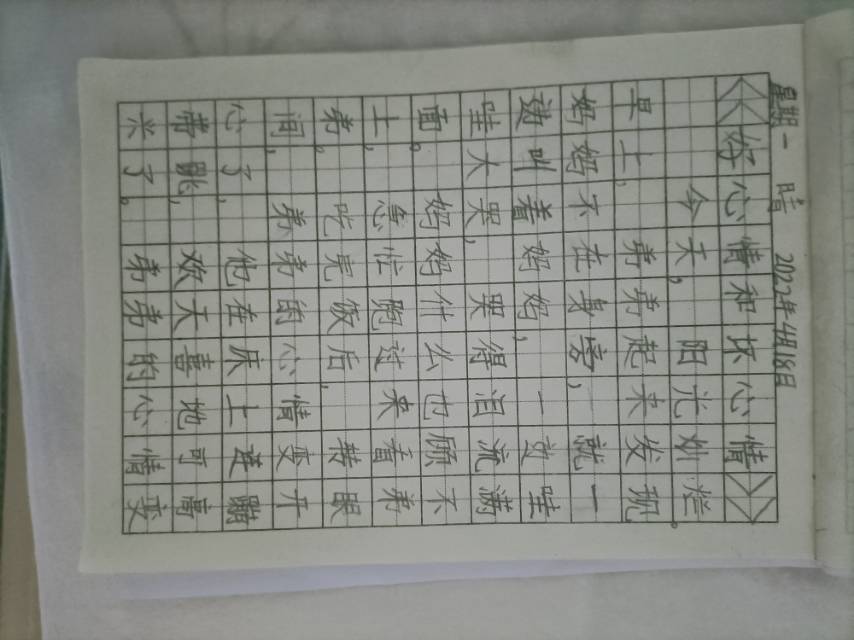 星期一 晴 2022年4月18日
《好心情和坏心情》
今天,阳光灿烂。
早上,弟弟起来发现
妈妈不在身旁,就一
边叫着妈妈,一边哇
哇大哭,哭得泪流满
面。妈妈什么也顾不
上,急忙跑过来看弟
弟。吃完饭后,转眼
间,弟弟的心情变开
心了,他在床上连蹦
带跳,欢天喜地可高
兴了。弟弟的心情变